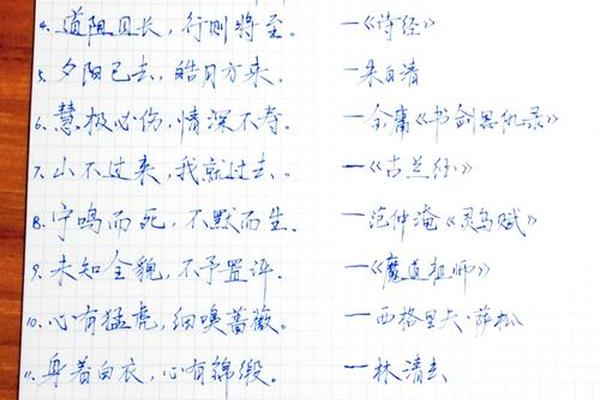 4. 道阻且长，行则将至。 —《诗经》
5. 夕阳已去，皓月方来。 —朱自清
6. 慧极必伤，情深不寿。 —金庸《书剑恩仇录》
7. 山不过来，我就过去。 —《古兰经》
8. 宁鸣而死，不默而生。 —范仲淹《灵乌赋》
9. 未知全貌，不予置评。 —《魔道祖师》
10. 心有猛虎，细嗅蔷薇。 —西格里夫·萨松
11. 身着白衣，心有锦缎。 —林清玄